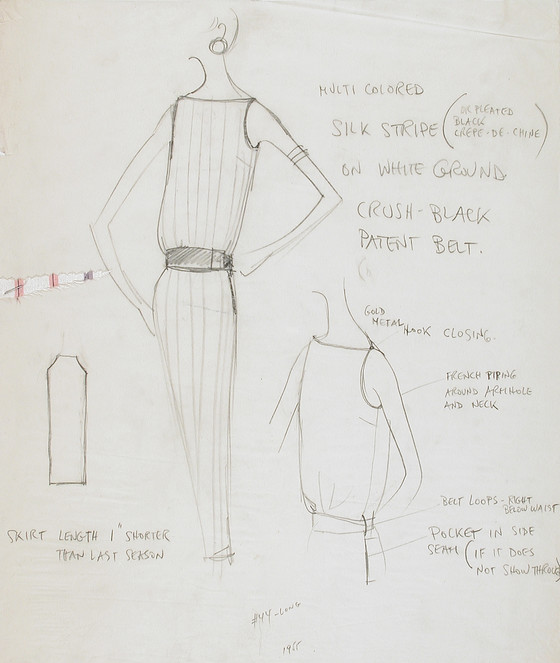 MULTI COLORED
SILK STRIPE (OR PLEATED
BLACK
CREPE-DE-CHINE)
ON WHITE GROUND.
CRUSH-BLACK
PATENT BELT.
GOLD
METAL
HOOK CLOSING.
FRENCH PIPING
AROUND ARMHOLE
AND NECK
BELT LOOPS - RIGHT
BELOW WAIST
POCKET IN SIDE
SEAM (IF IT DOES
NOT SHOW THROUGH)
SKIRT LENGTH 1" SHORTER
THAN LAST SEASON
#44-LONG